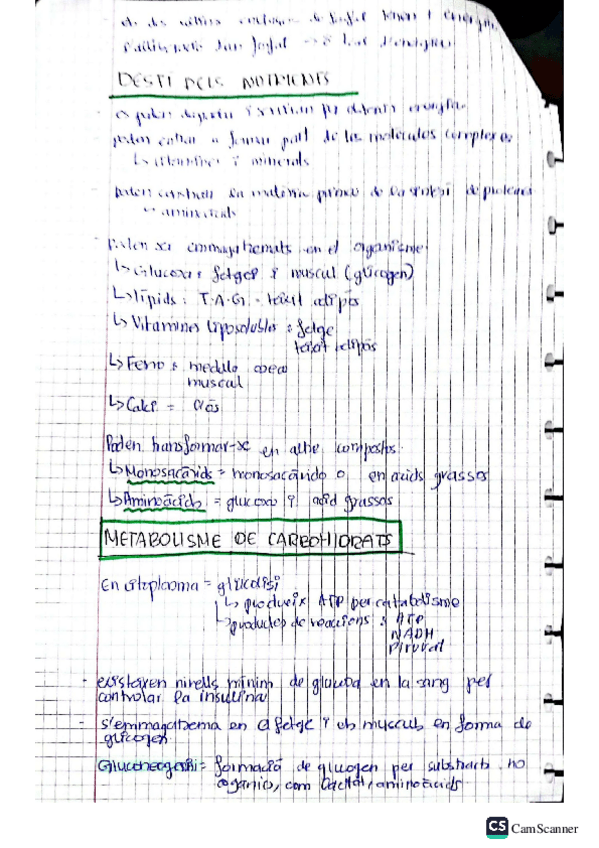 DESTI DELS NUTRIENTS
es poden
poden entrar a formar part de les molècules complexes
↳ vitamines i minerals
poden constituir la matèria prima de la síntesi de proteïnes
aminoàcids
Poden ser emmagatzemats en el organisme
↳ Glucosa: fetge i muscul (glicogen)
↳ lípids: T.A.G. - teixit adipós
↳ Vitamines liposolubles: fetge
teixit adipós
↳ Ferro: medul·la òsea
muscul
↳ Calci = Ós
Poden transformar-se en altre compostos
↳ Monosacàrids = monosacàrido o en acids grassos
↳ Aminoàcids = glucosa i acid grassos
METABOLISME DE CARBOHIDRATS
En citoplasma = glicolisi
↳ produeix ATP per catabolisme
↳ productes de reaccions: ATP
NADH
Piruvat
- existeixen nivells mínim de glucosa en la sang per
controlar la insulina
- s'emmagatzema en el fetge i els musculs en forma de
glicogen
= formació de glucogen per substracts no
organics, com lactat, aminoàcids
CS CamScanner